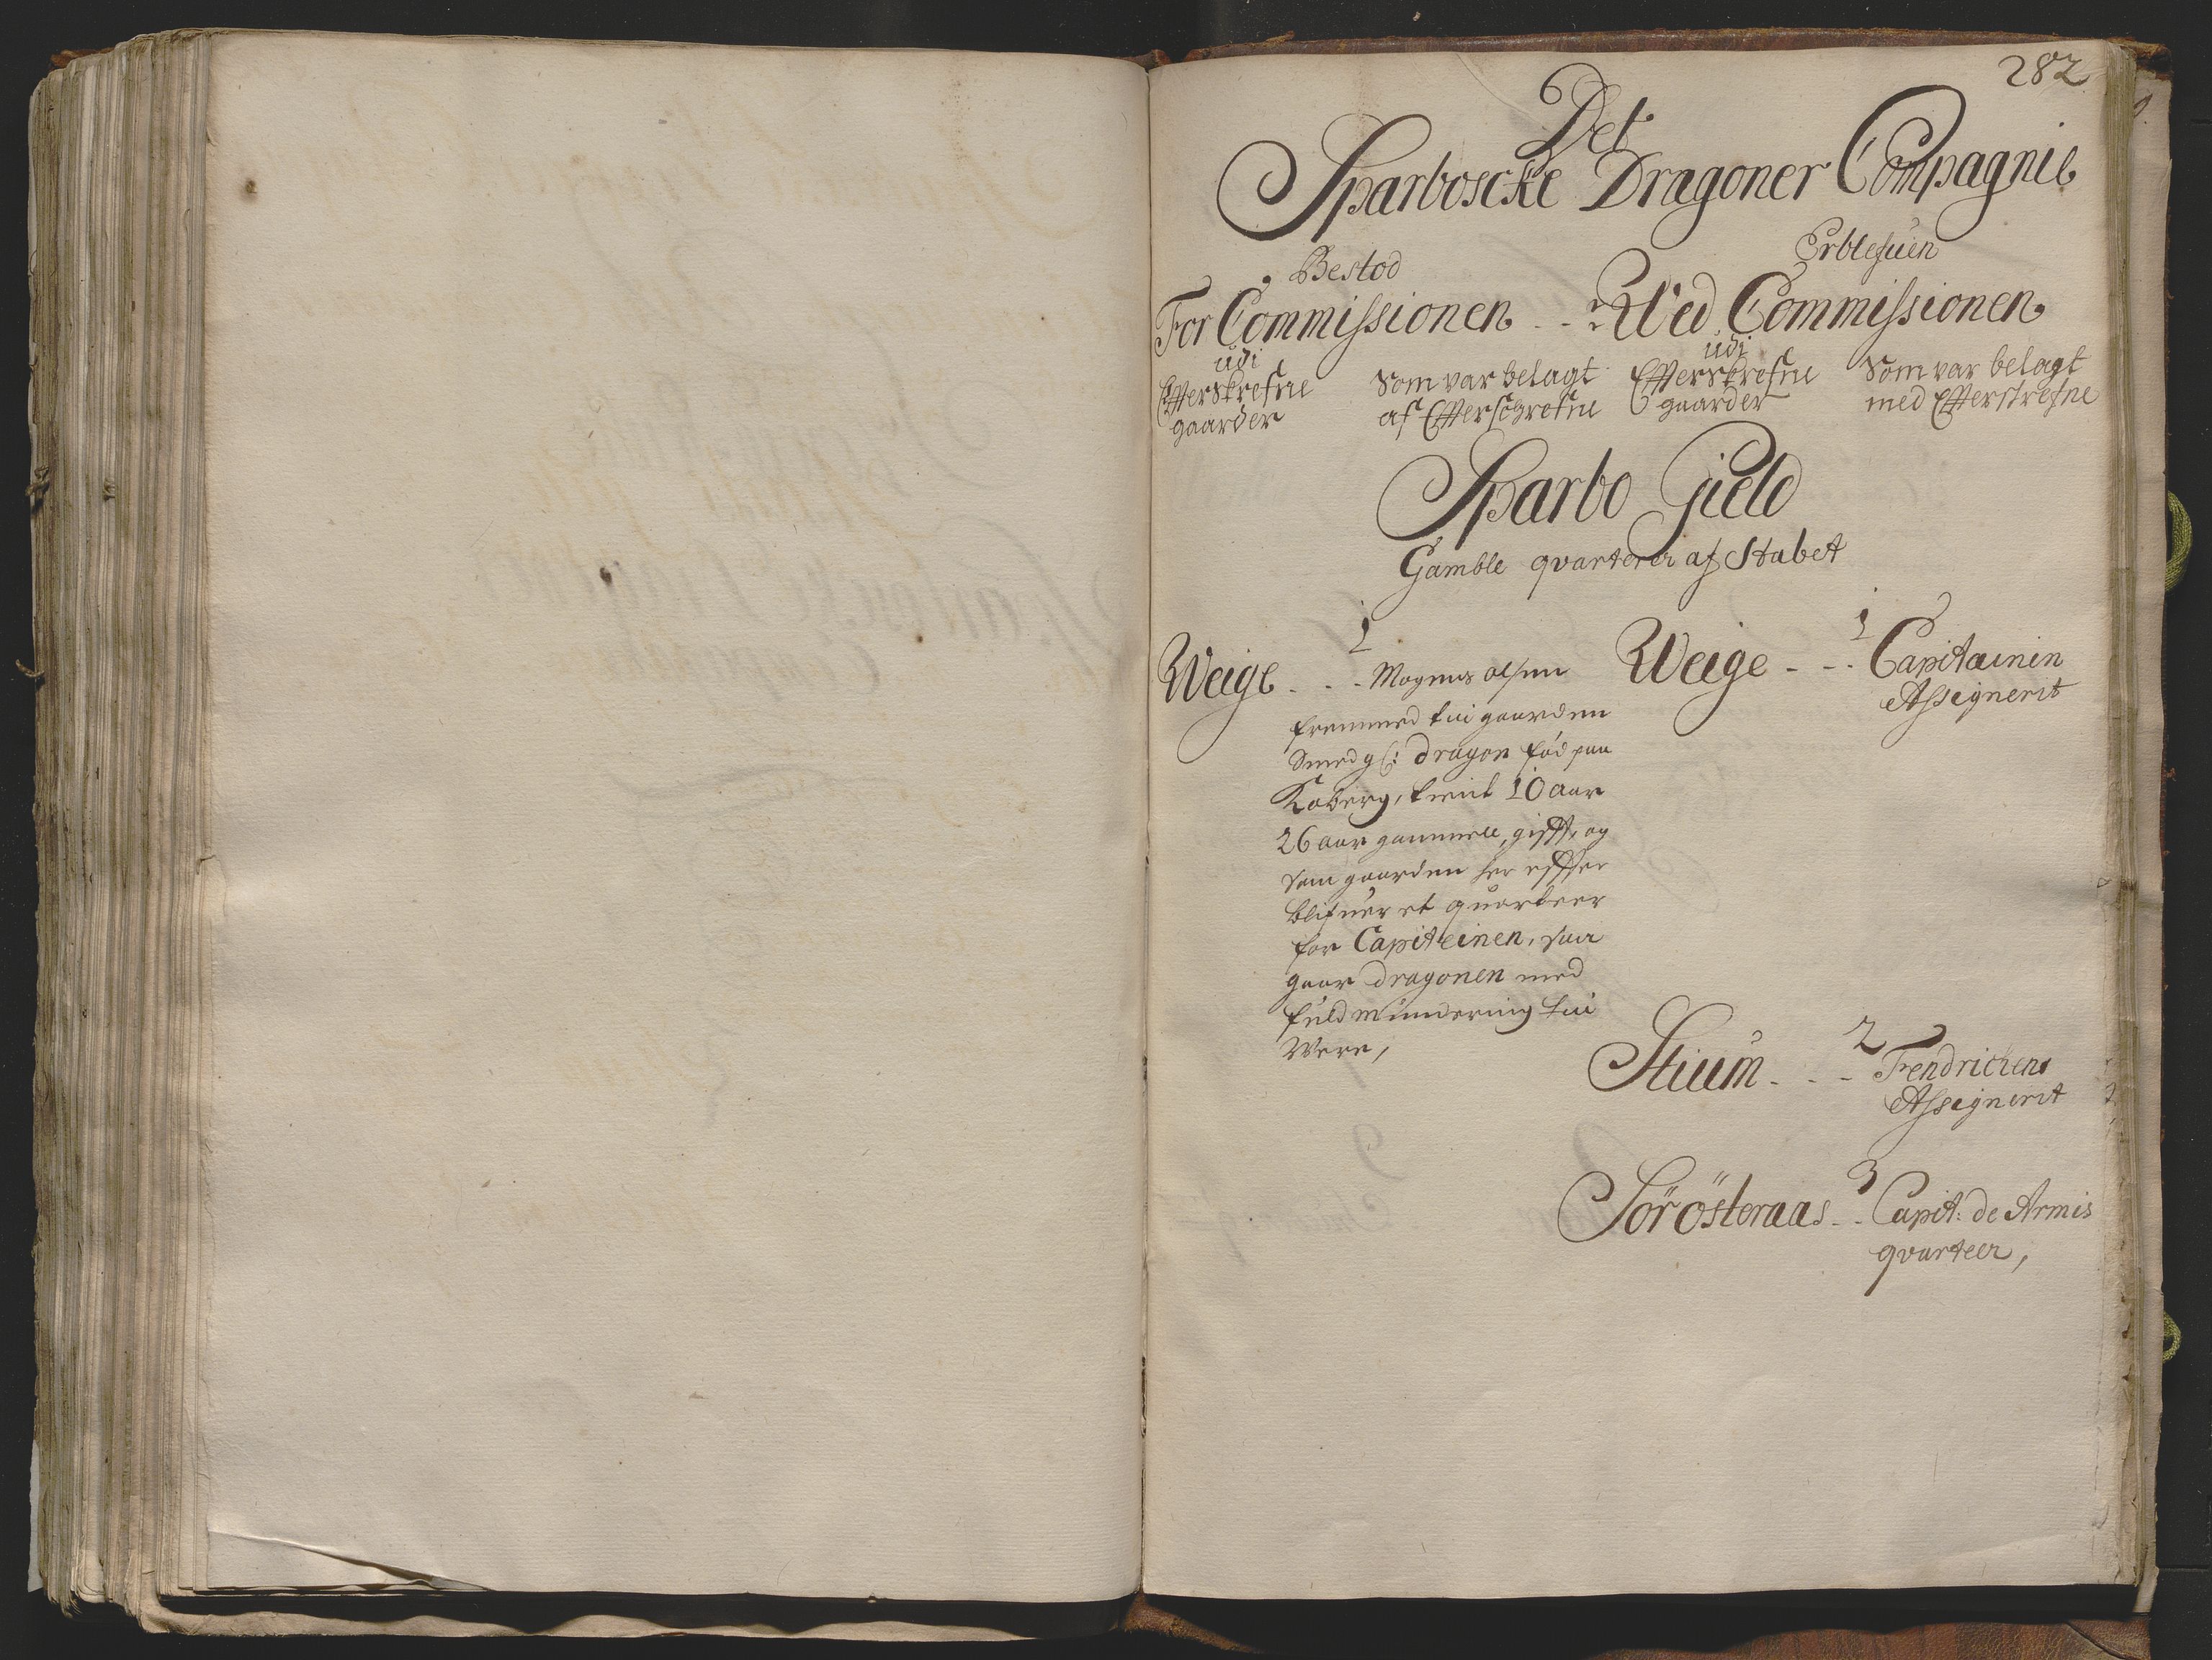 282
Det
Sparboscke Dragoner Compagnie
Bestod
For Commissionen
udi
Efferskrefne
gaarder
Som var belagt
af Efferschrefne
Erblefuen
Wed Commissionen
udi
Efferskrefne
gaarder
Som var belagt
med Efferskrefne
Sparbo Gield
Gamble qvarterer af Stabet
1
Weige - - - Mogens olsen
fremmed till gaarden
Smed gl: dragon fød paa
Kaberg, tient 10 aar
26 aar gammell, gifft, og
som gaarden her effter
blifuer et quarteer
for Capiteinen, saa
gaar dragonen med
fuld mundering till
Were,
1
Weige - - - Capitainen
Assignerit
2
Stium - - - Fendrichen
Assignerit
3
Sörösteraas - - Capit: de Armis
qvarteer,